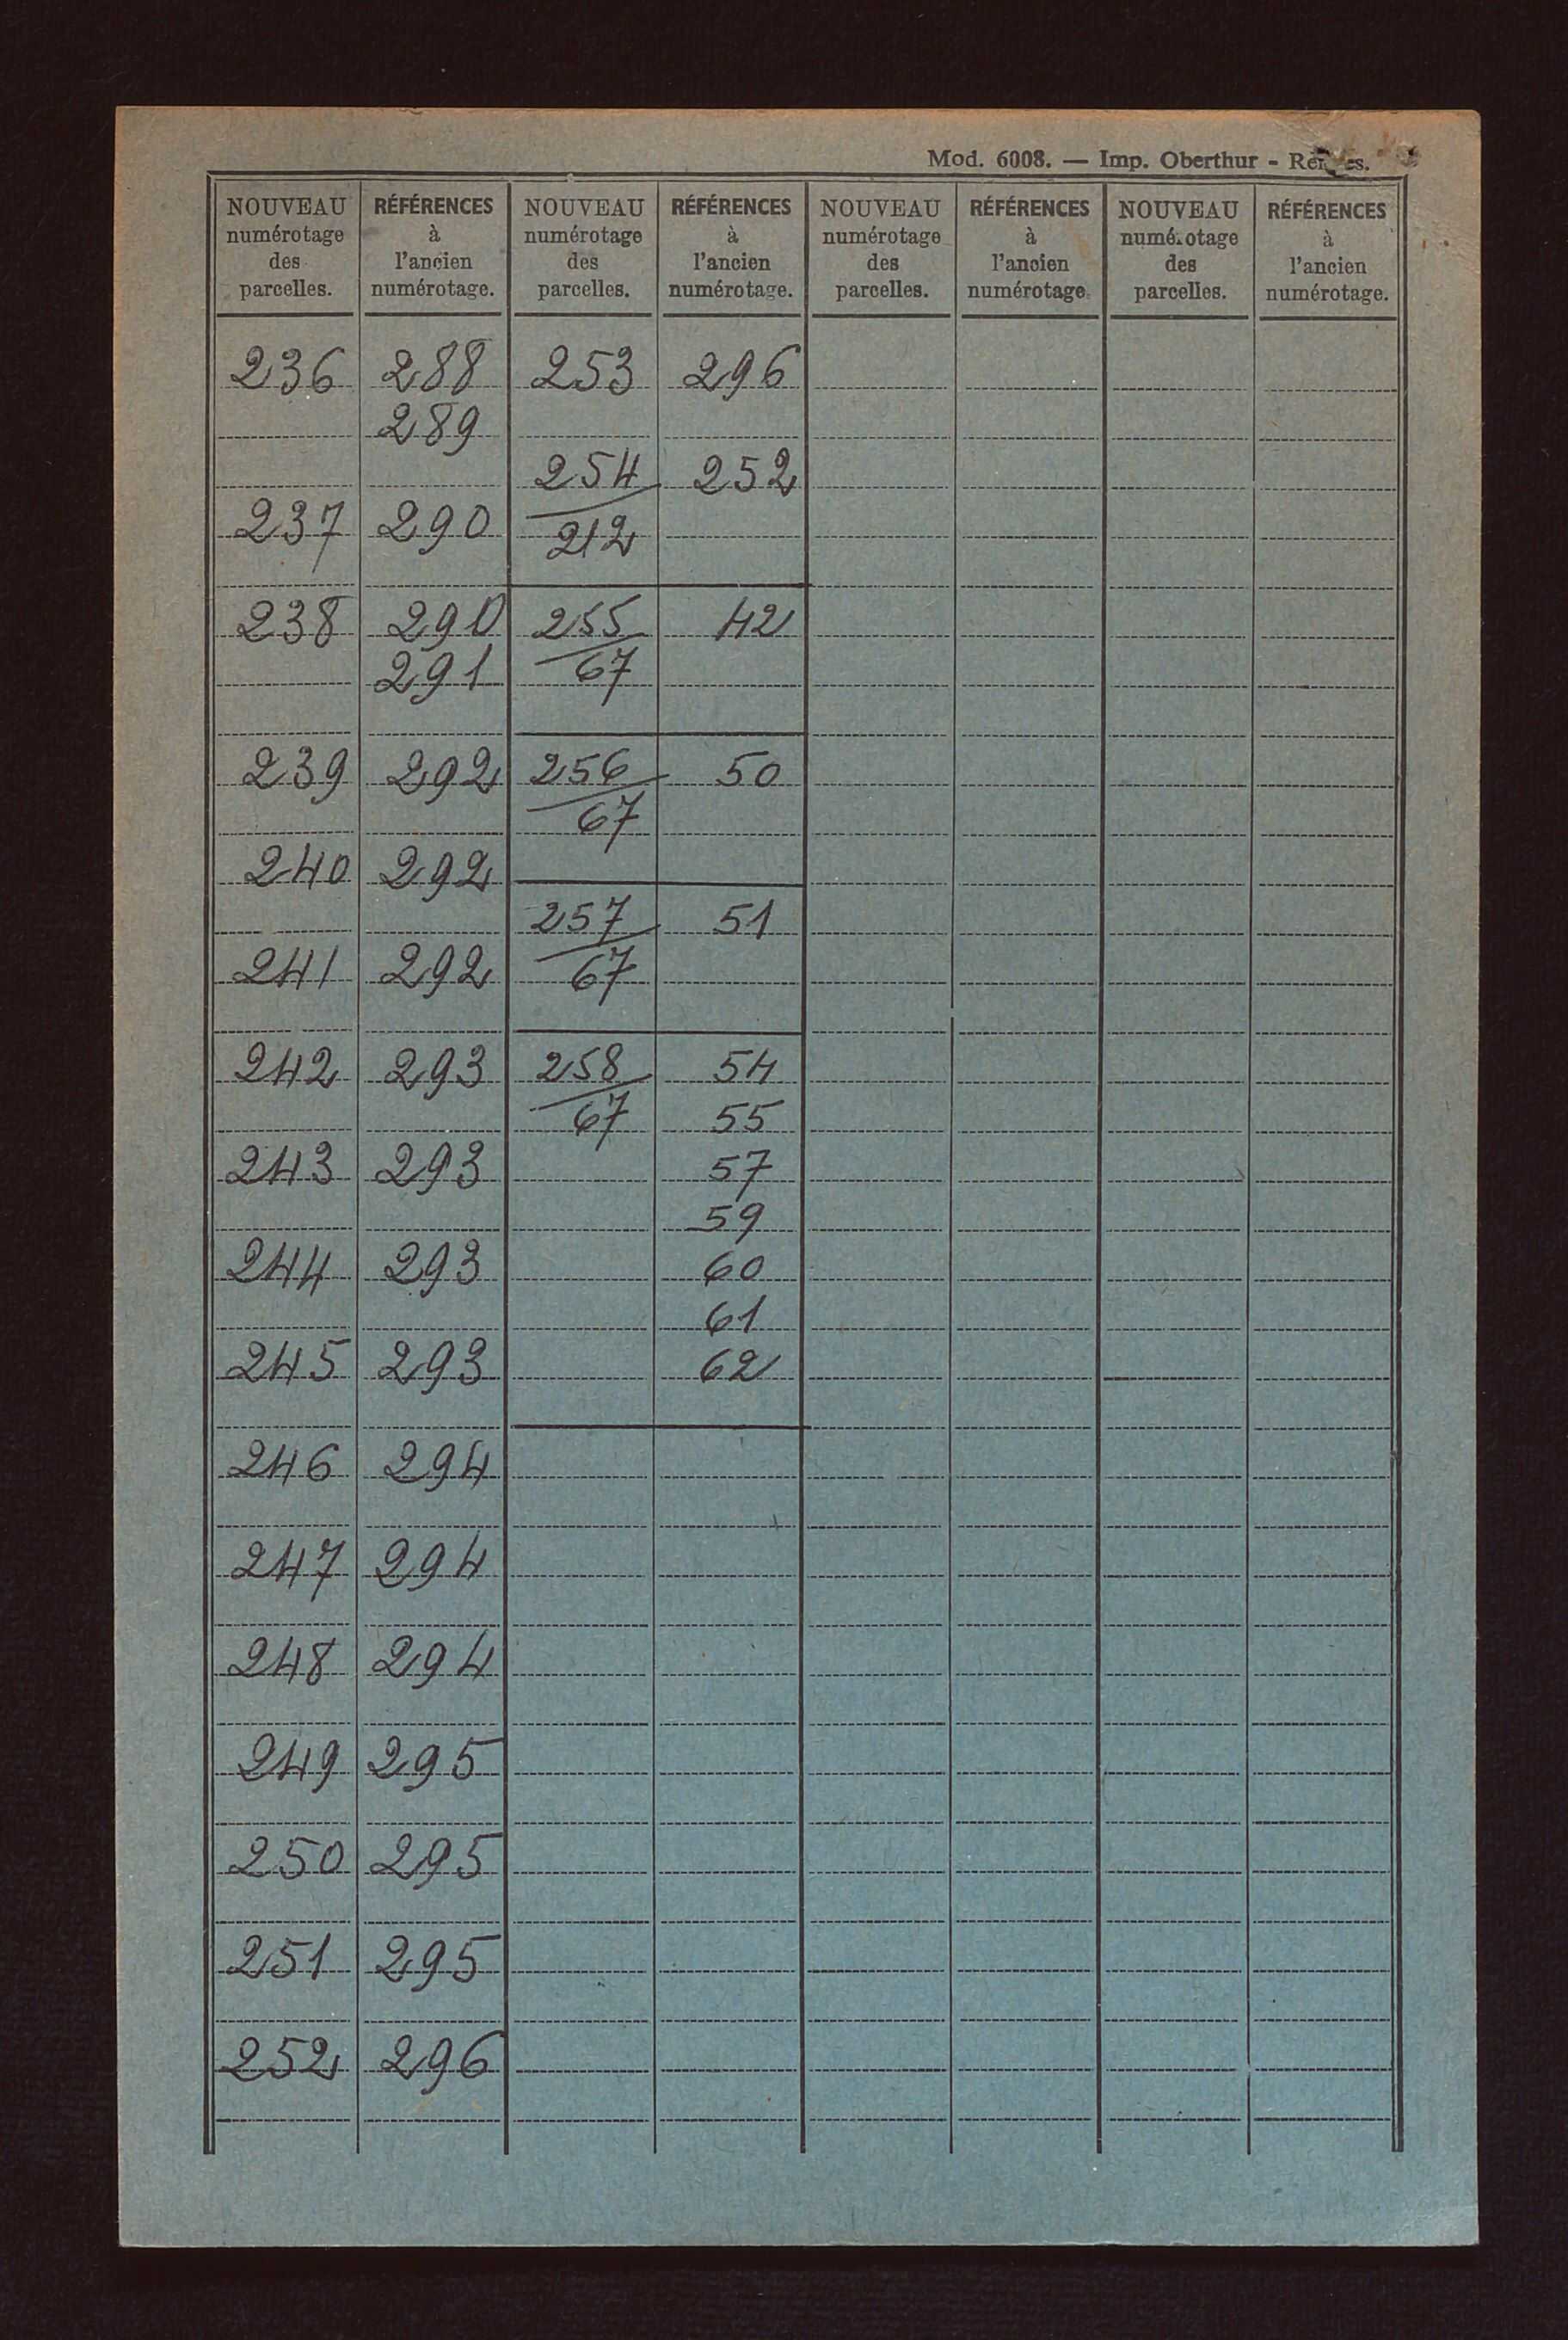 Mod. 6008. — Imp. Oberthur - Rennes.
NOUVEAU numérotage des parcelles. RÉFÉRENCES à l'ancien numérotage. NOUVEAU numérotage des parcelles. RÉFÉRENCES à l'ancien numérotage. NOUVEAU numérotage des parcelles. RÉFÉRENCES à l'ancien numérotage. NOUVEAU numérotage des parcelles. RÉFÉRENCES à l'ancien numérotage.
236 288
289
237 290
238 290
291
239 292
240 292
241 292
242 293
243 293
244 293
245 293
246 294
247 294
248 294
249 295
250 295
251 295
252 296
253 296
254 252
212
255 42
67
256 50
67
257 51
67
258 54
67 55
57
59
60
61
62